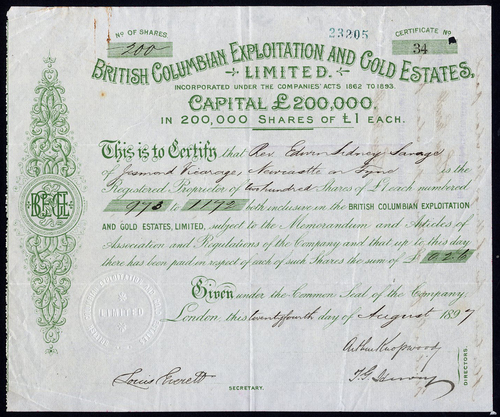 No OF SHARES.
200
23205
CERTIFICATE No
34
BRITISH COLUMBIAN EXPLOITATION AND GOLD ESTATES,
LIMITED.
INCORPORATED UNDER THE COMPANIES' ACTS 1862 TO 1893.
CAPITAL £200,000.
IN 200,000 SHARES OF £1 EACH.
This is to Certify, that Rev. Edwin Sidney Savage
of Jesmond Vicarage, Newcastle on Tyne is the
Registered Proprietor of two hundred Shares of £1 each numbered
973 to 1172 both inclusive in the BRITISH COLUMBIAN EXPLOITATION
AND GOLD ESTATES, LIMITED, subject to the Memorandum and Articles of
Association and Regulations of the Company and that up to this day
there has been paid in respect of each of such Shares the sum of £ 0.2.6
Given under the Common Seal of the Company,
London, this twenty fourth day of August 1897
LIMITED
Arthur Knopwood
Louis Everett
SECRETARY.
DIRECTORS.